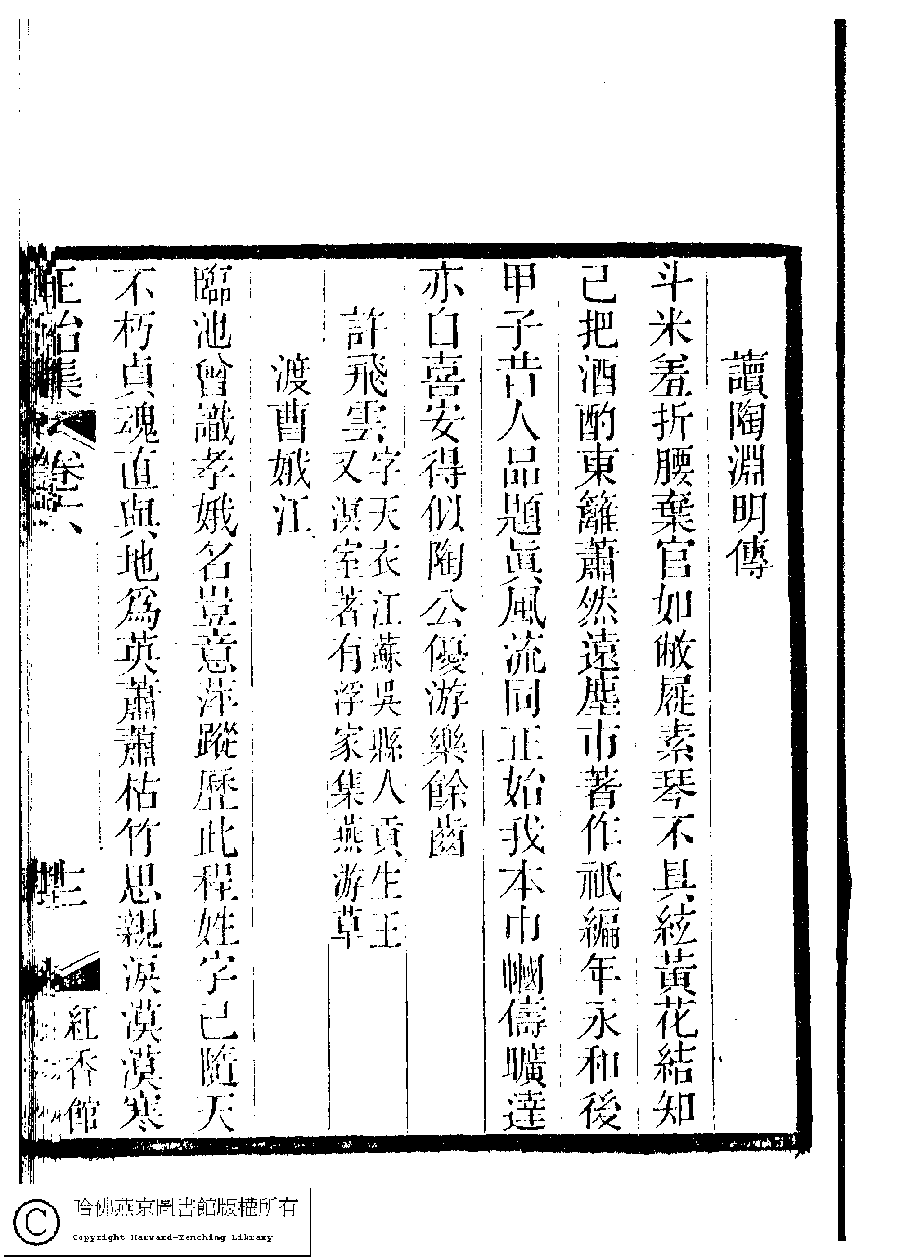 讀陶淵明傳
斗米羞折腰棄官如敝屣素琴不具絃黃花結知
己把酒酌東籬蕭然遠塵市著作祇編年永和後
甲子昔人品題眞風流同正始我本巾幗儔曠達
亦自喜安得似陶公優游樂餘齒
許飛雲字天衣江蘇吳縣人貢生王
又溟室著有浮家集燕游草
渡曹娥江
臨池曾識孝娥名豈意萍蹤歷此程姓字已隨天
不朽貞魂直與地爲英蕭蕭枯竹思親淚漠漠寒
正始集 卷六
紅香館
哈佛燕京圖書館版權所有
Copyright Harvard-Yenching Library